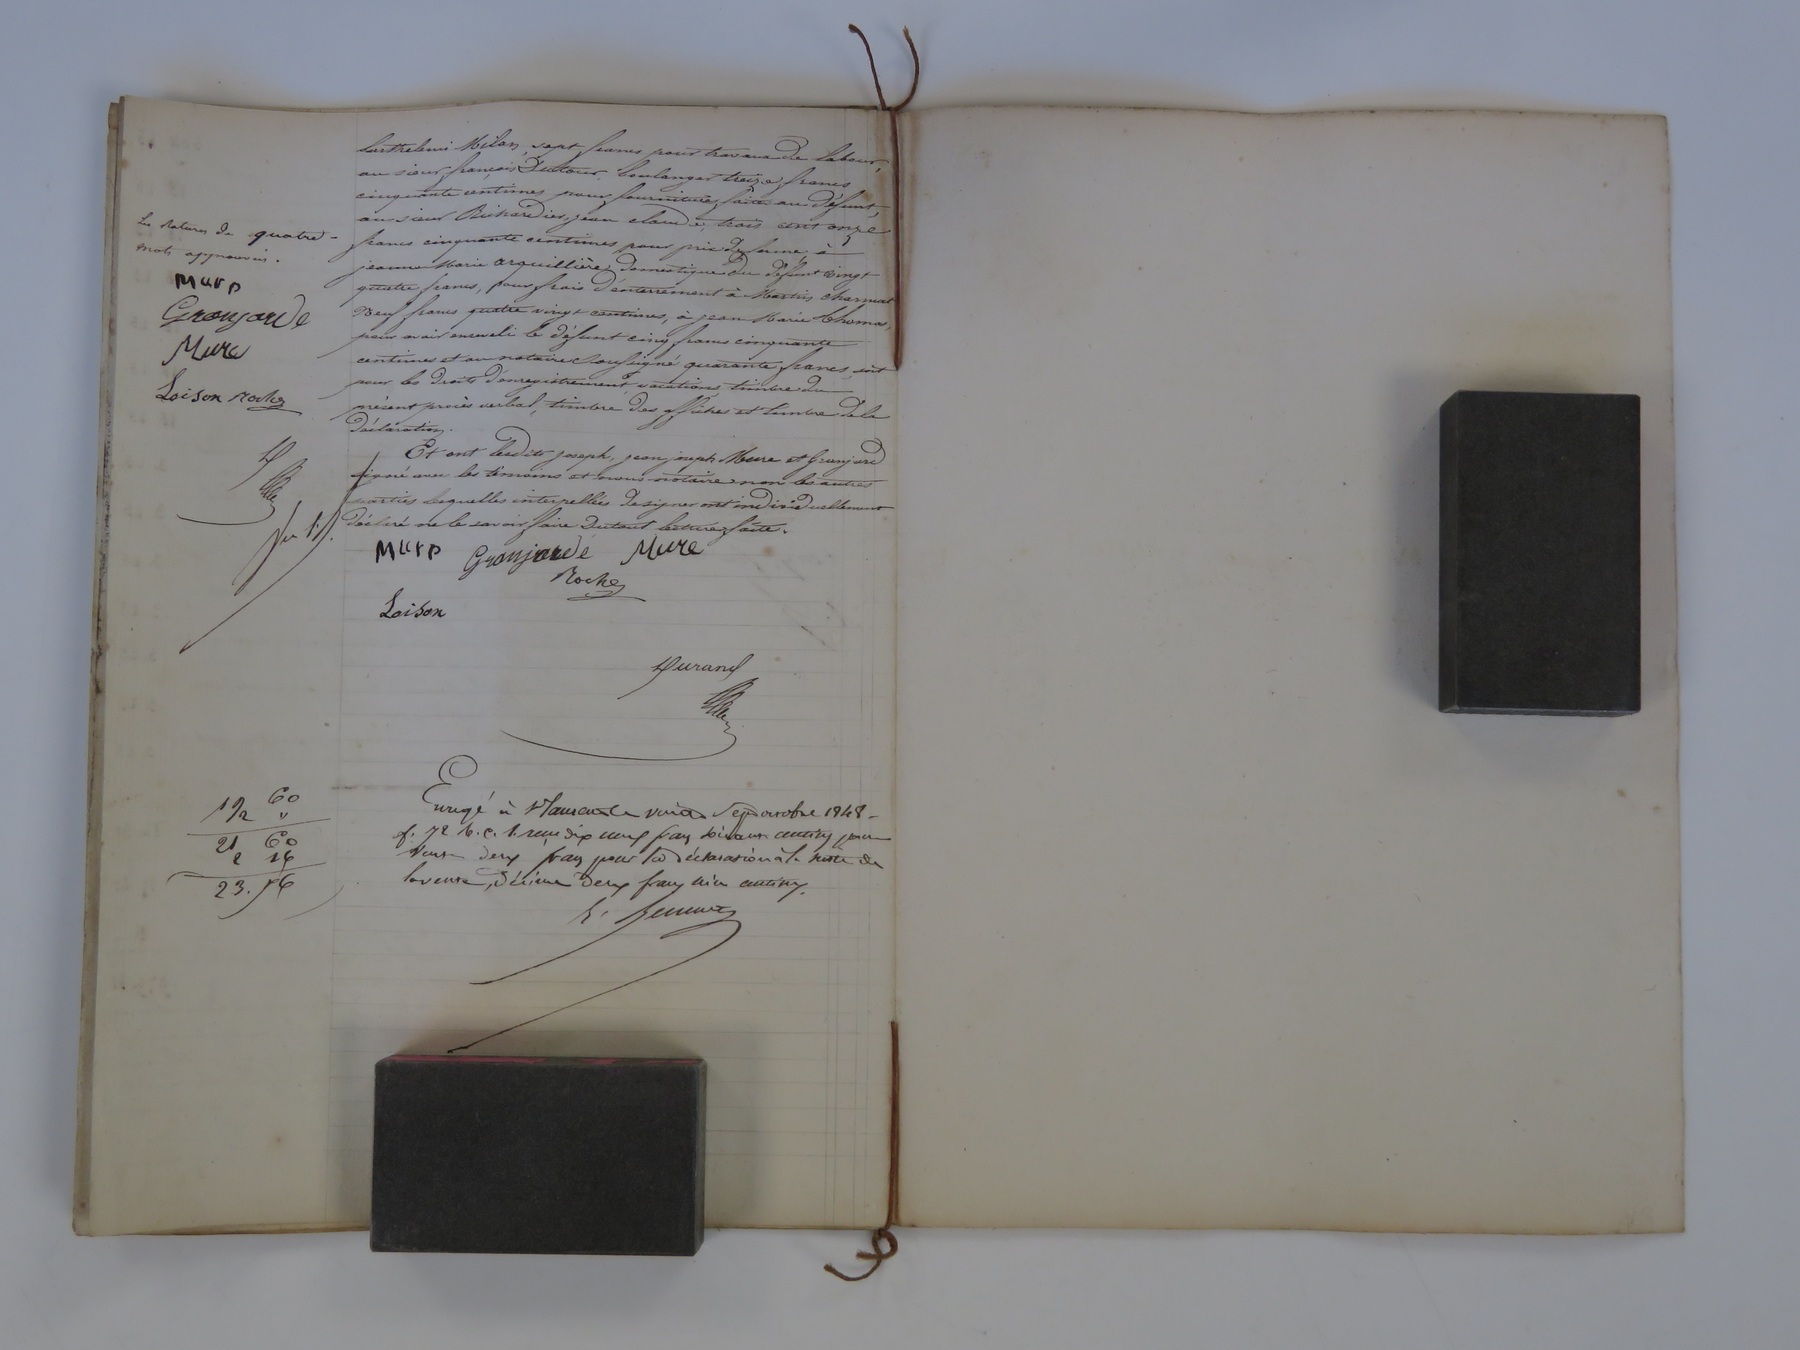 Barthelemi Milan, sept francs pour travaux de labour,
au sieur françois Dutour boulanger treize francs
cinquante centimes pour fourniture faite au défunt,
au sieur Richardier, jean claude, trois cent onze
francs cinquante centimes pour prix de ferme, à
jeanne Marie arquillière domestique du défunt vingt
quatre francs, pour frais d'enterrement à Martin charmat
neuf francs quatre vingt centimes, à jean Marie thomas,
pour avoir enseveli le défunt cinq francs cinquante
centimes et au notaire soussigné quarante francs, soit
pour les droits d'enregistrement, vacations, timbre du
présent procès verbal, timbre des affiches et timbre de la
déclaration.
Et ont lesdits joseph, jean joseph Mure et Granjard
signé avec les témoins et nous notaire non les autres
parties lesquelles interpellées de signer ont individuellement
déclaré ne le savoir faire du tout lecture faite.
Mure Granjarde Mure
Roche
Loison
Durand
Les ratures de quatre
mots approuvées.
Mure
Granjarde
Mure
Loison Roche
D
Enregé à St Laurent le vingt sept octobre 1848
f. 72 v. c. 1 reçu dix neuf francs soixante centimes pour
vente deux francs pour la déclaration à la suite de
la vente, décime deux francs centimes.
19 60
2 "
21 60
2 16
23. 76